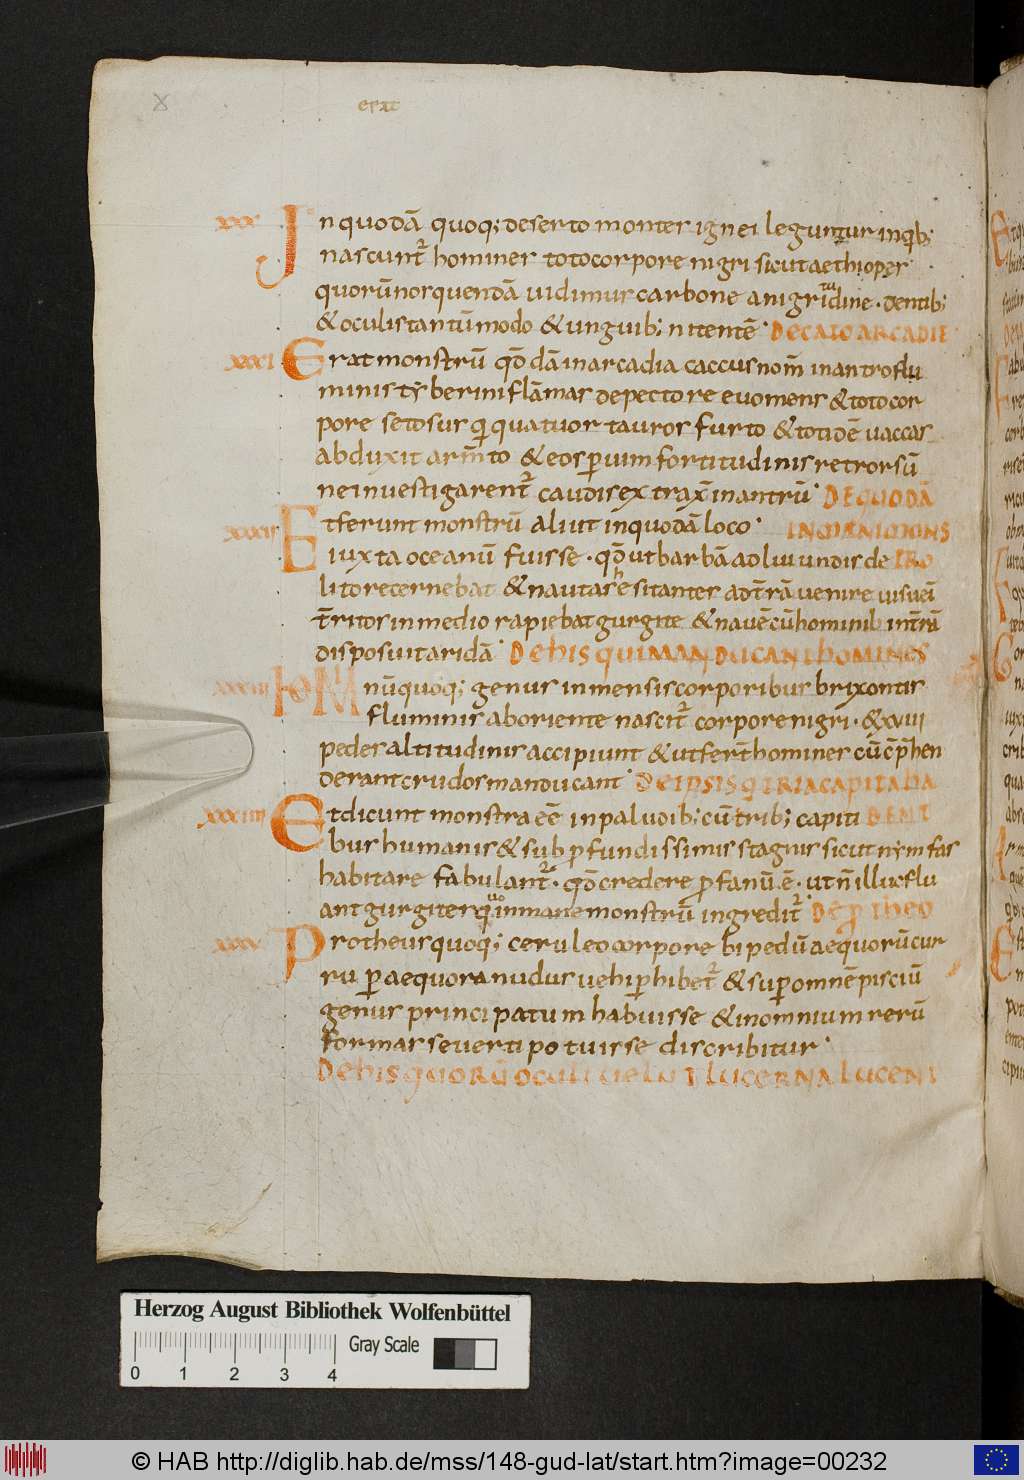 erat
xxx In quodā quoq; deserto montes ignei leguntur inqib;
nascunt᷑ homines totocorpore nigri sicut aethiopes
quorū nos quendā uidimus carbone a nigritudine · dentib;
& oculis tantū modo & unguib; nitentē · DE CACO ARCADIE
xxxi Erat monstrū qđdā in arcadia caccus nom̄ in antro flu
minis tyberini flāmas de pectore euomens & toto cor
pore setosus qi quatuor tauros furto & totidē uaccas
abduxit arm̄to & eos p uim fortitudinis retrorsū
ne inuestigarent᷑ caudis extrax̄ in antrū · DE QUODĀ
xxxii Et ferunt monstrū aliut in quodā loco · IN
iuxta oceanū fuisse · qđ ut barbā adluuundis de
litore cernebat & nautas hesitanter ad t̄rā uenire
t̄ritos in medio rapiebat gurgite & nauē cū hominib; in t̄rā
disposuit aridā · DE HIS QUI MANDUCANT HOMINES
xxxiii nū quoq; genus inmensis corporibus brixontis
fluminis ab oriente nascit᷑ corpore nigri · & xviii
pedes altitudinis accipiunt & ut fer̄t homines cū cp̄hen
derant crudos manducant · DE IPSIS Q TRIA CAPITA HA
xxxiiii Et dicunt monstra eē in paludib; cū trib; capiti BENT
bus humanis & sub pfundissimis stagnis sicut nymfas
habitare fabulant᷑ · qđ credere pfanū ē · ut n̄ illuc flu
ant gurgites quo inmane monstrū ingredit᷑ · DE PTHEO
xxxv Protheus quoq; ceruleo corpore bipedū aequorū cur
ru p aequora nudus uehi phibet᷑ & sup omnē pisciū
genus principatum habuisse & in omnium rerū
formas se uerti potuisse discribitur ·
DE HIS QUORŪ OCULI UELUT LUCERNA LUCENT
Herzog August Bibliothek Wolfenbüttel
Gray Scale
0 1 2 3 4
© HAB http://diglib.hab.de/mss/148-gud-lat/start.htm?image=00232